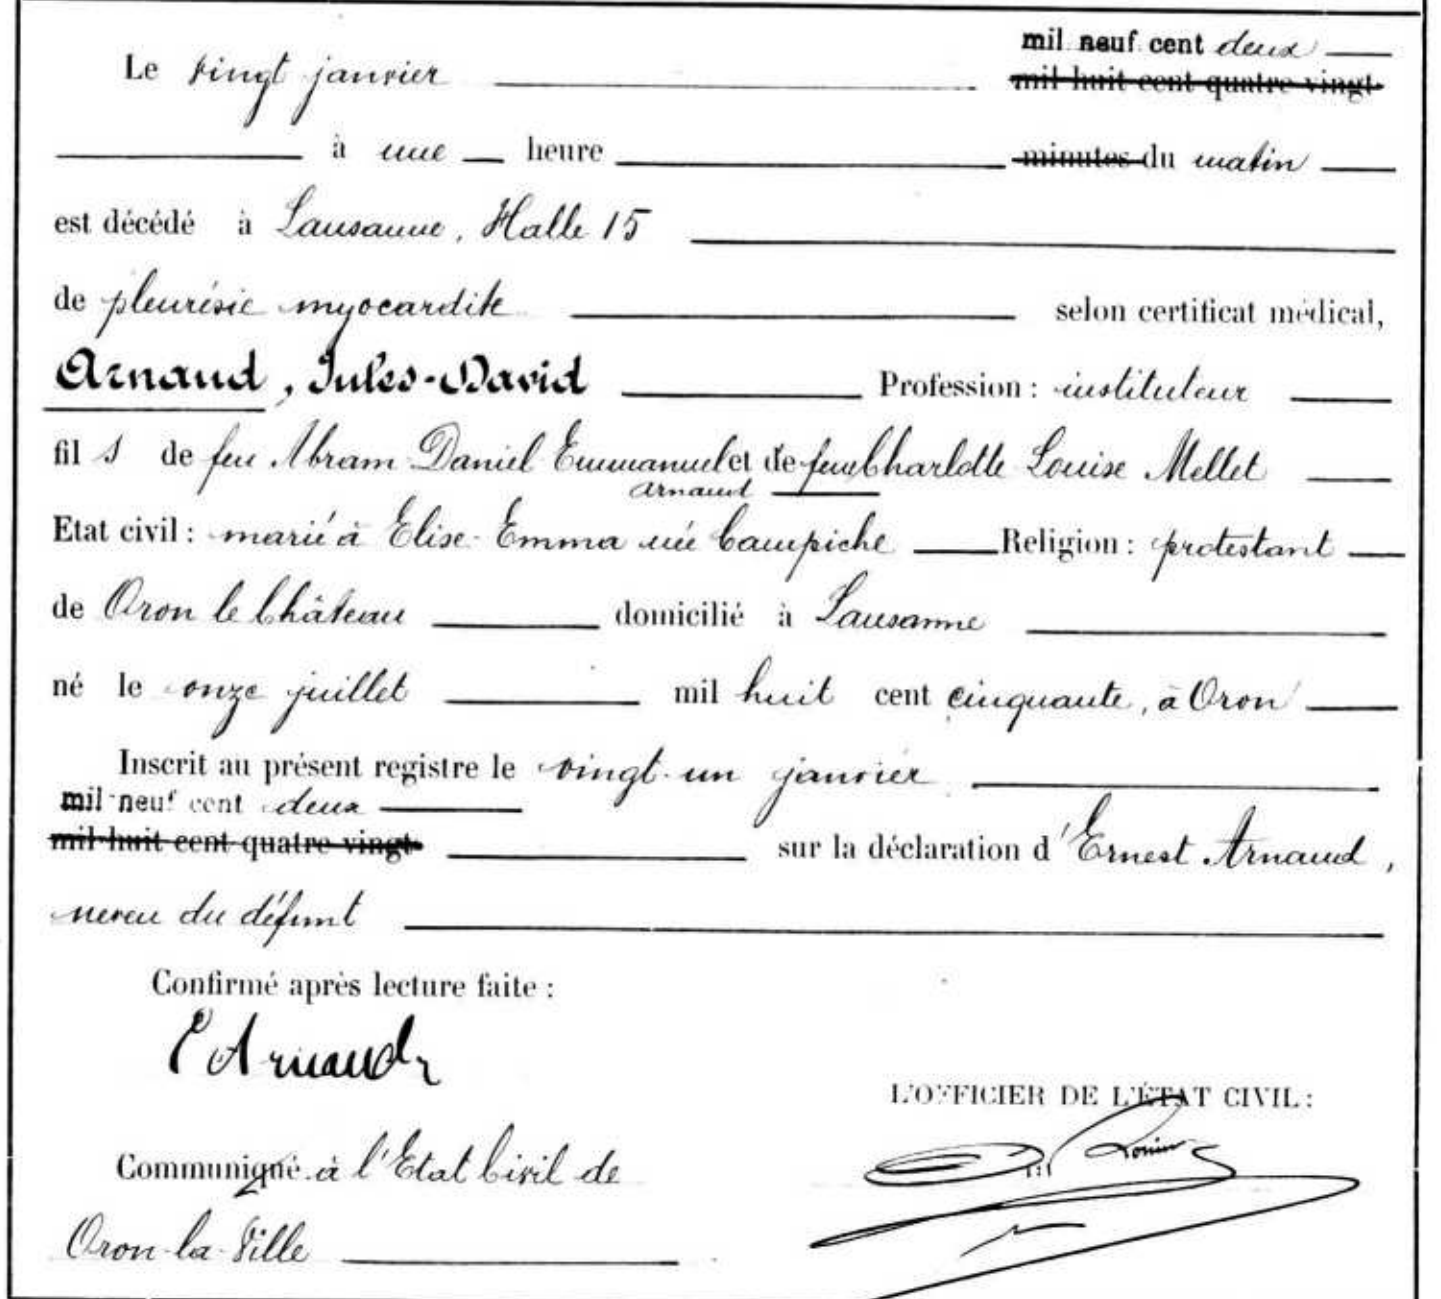 Le vingt janvier mil neuf cent deux
mil huit cent quatre-vingt
à une heure minutes du matin
est décédé à Lausanne, Halle 15
de pleurésie myocardite selon certificat médical,
Arnaud, Jules-David Profession : instituteur
fils de feu Abram Daniel Emmanuel et de feue Charlotte Louise Mellet
Arnaud
Etat civil : marié à Elise-Emma née Campiche Religion : protestant
de Oron le Château domicilié à Lausanne
né le onze juillet mil huit cent cinquante, à Oron
Inscrit au présent registre le vingt-un janvier
mil neuf cent deux
mil huit cent quatre-vingt sur la déclaration d'Ernest Arnaud,
neveu du défunt
Confirmé après lecture faite :
E Arnaud
L'OFFICIER DE L'ÉTAT CIVIL :
Communiqué à l'Etat Civil de
Oron-la-Ville